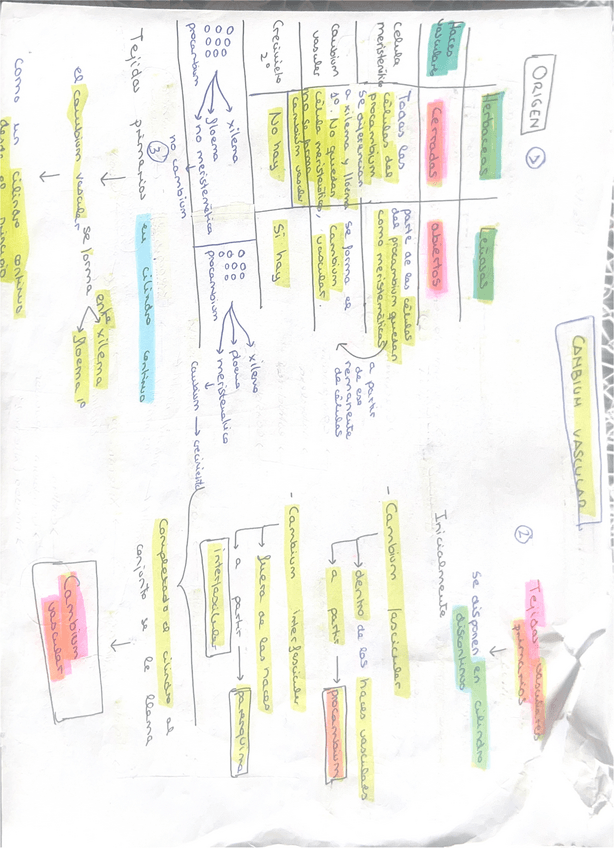 CAMBIUM VASCULAR
ORIGEN
1)
Haces vasculares
Herbáceas
Leñosas
Cerrados
abiertos
celula meristemática
Todas las
células del
procambium
se diferencian
a xilema y floema
1º. No quedan
célula meristemática,
no se forma
cambium vascular
parte de las células
del procambium quedan
como meristemáticas
a partir
de ese
remanente
de células
cambium
vascular
se forma el
cambium
vascular.
Crecimieto
2º
No hay
Si hay
procambium
xilema
floema
no meristemática
no cambium
procambium
xilema
floema
meristemático
cambium → crecimiento
2)
Tejidos vasculares
primarios
se disponen en cilindro
discontinuo
Inicialmente
- Cambium fascicular
→ dentro de los haces vasculares
→ a partir → procambium
- Cambium interfascicular
→ fuera de los haces
→ a partir → parenquima
interfascicular
Completado el cilindro al
conjunto se le llama
Cambium
vascular
3)
Tejidos primarios en cilindro continuo
el cambium vascular se forma entre xilema
floema 1º
como un cilindro continuo
desde el principio